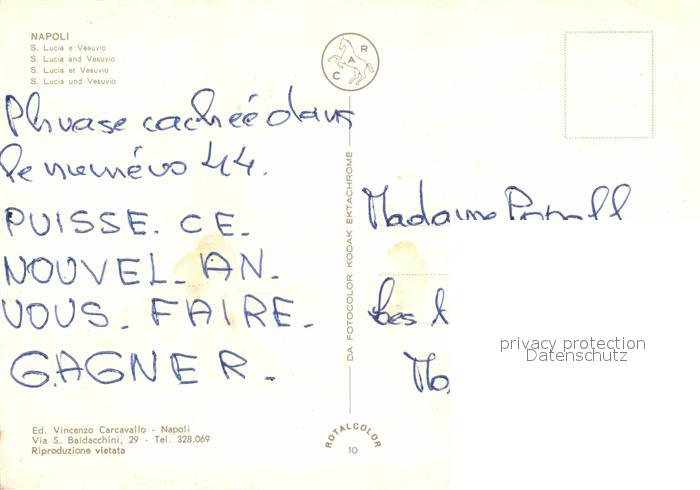 NAPOLI
S. Lucia e Vesuvio
S. Lucia and Vesuvio
S. Lucia et Vesuvio
S. Lucia und Vesuvio
CAR
Phrase cachée dans
le numéro 44.
PUISSE. CE.
NOUVEL. AN.
VOUS. FAIRE.
GAGNER.
DA FOTOCOLOR KODAK EKTACHROME
Madame
privacy protection
Datenschutz
Ed. Vincenzo Carcavallo - Napoli
Via S. Baldacchini, 29 - Tel. 328.069
Riproduzione vietata
ROTALCOLOR
10